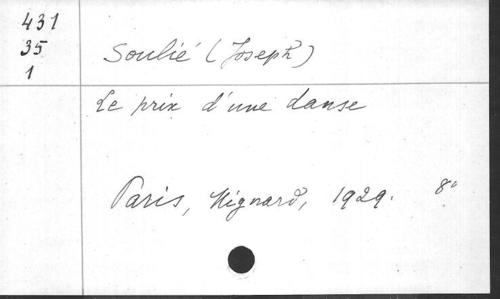 431
35
1
Soulié (Joseph)
Le prix d'une danse
Paris, Mignard, 1929. 8°